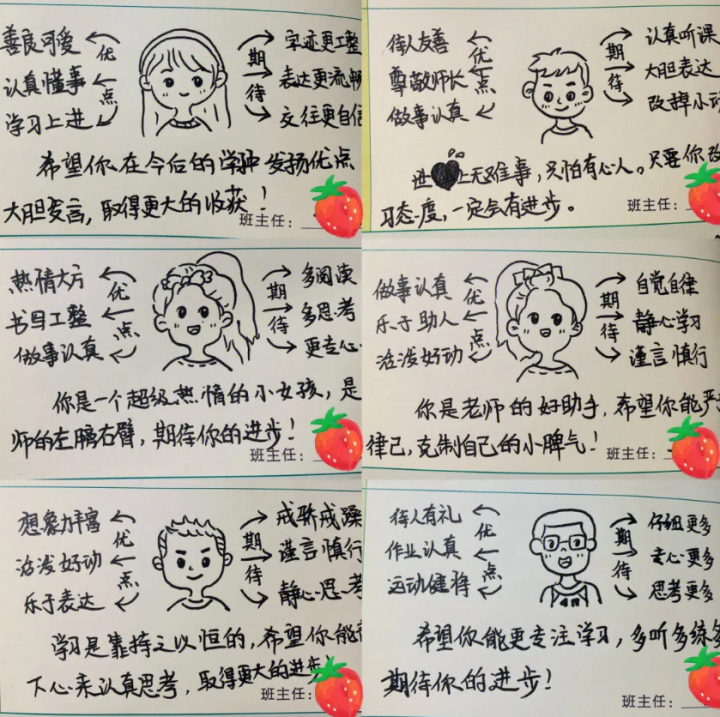 善良可爱
认真懂事
学习上进
优
点
期
待
字迹更工整
表达更流畅
交往更自信
希望你在今后的学习中发扬优点
大胆发言，取得更大的收获！
班主任：
待人友善
尊敬师长
做事认真
优
点
期
待
认真听课
大胆表达
改掉小动
进上无难事，只怕有心人。只要你改
习态度，一定会有进步。
班主任：
热情大方
书写工整
做事认真
优
点
期
待
多阅读
多思考
更专心
你是一个超级热情的小女孩，是
师的左膀右臂，期待你的进步！
班主任：
做事认真
乐于助人
活泼好动
优
点
期
待
自觉自律
静心学习
谨言慎行
你是老师的好助手，希望你能严
律己，克制自己的小脾气！
班主任：
想象力丰富
活泼好动
乐于表达
优
点
期
待
戒骄戒躁
谨言慎行
静心思考
学习是靠持之以恒的，希望你能
下心来认真思考，取得更大的进步！
班主任：
待人有礼
作业认真
运动健将
优
点
期
待
仔细更多
走心更多
思考更多
希望你能更专注学习，多听多练多
期待你的进步！
班主任：